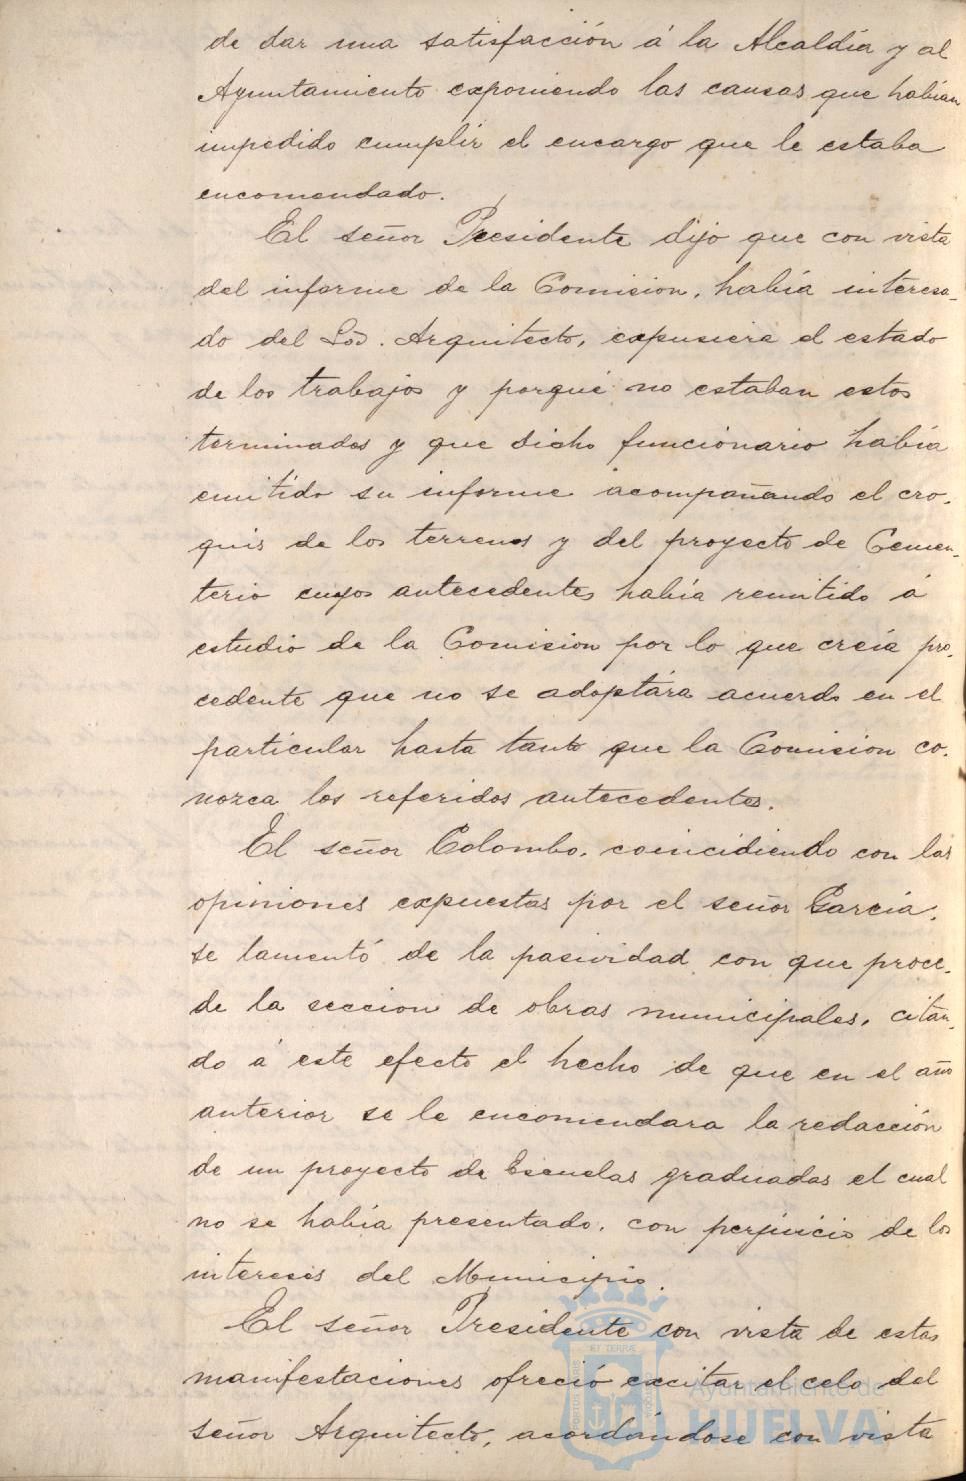 de dar una satisfacción á la Alcaldía y al
Ayuntamiento exponiendo las causas que habían
impedido cumplir el encargo que le estaba
encomendado.
El señor Presidente dijo que con vista
del informe de la Comision, había interesa-
do del Sor. Arquitecto, expusiera el estado
de los trabajos y porqué no estaban estos
terminados y que dicho funcionario había
emitido su informe acompañando el cro-
quis de los terrenos y del proyecto de Cemen-
terio cuyos antecedentes había remitido á
estudio de la Comision por lo que creía pro-
cedente que no se adoptára acuerdo en el
particular hasta tanto que la Comision co-
nozca los referidos antecedentes.
El señor Colombo, coincidiendo con las
opiniones expuestas por el señor García,
se lamentó de la pasividad con que proce-
de la seccion de obras municipales, citan-
do á este efecto el hecho de que en el año
anterior se le encomendara la redacción
de un proyecto de Escuelas graduadas el cual
no se había presentado, con perjuicio de los
intereses del Municipio.
El señor Presidente con vista de estas
manifestaciones ofreció excitar el celo del
señor Arquitecto, acordándose con vista
Ayuntamiento de
HUELVA